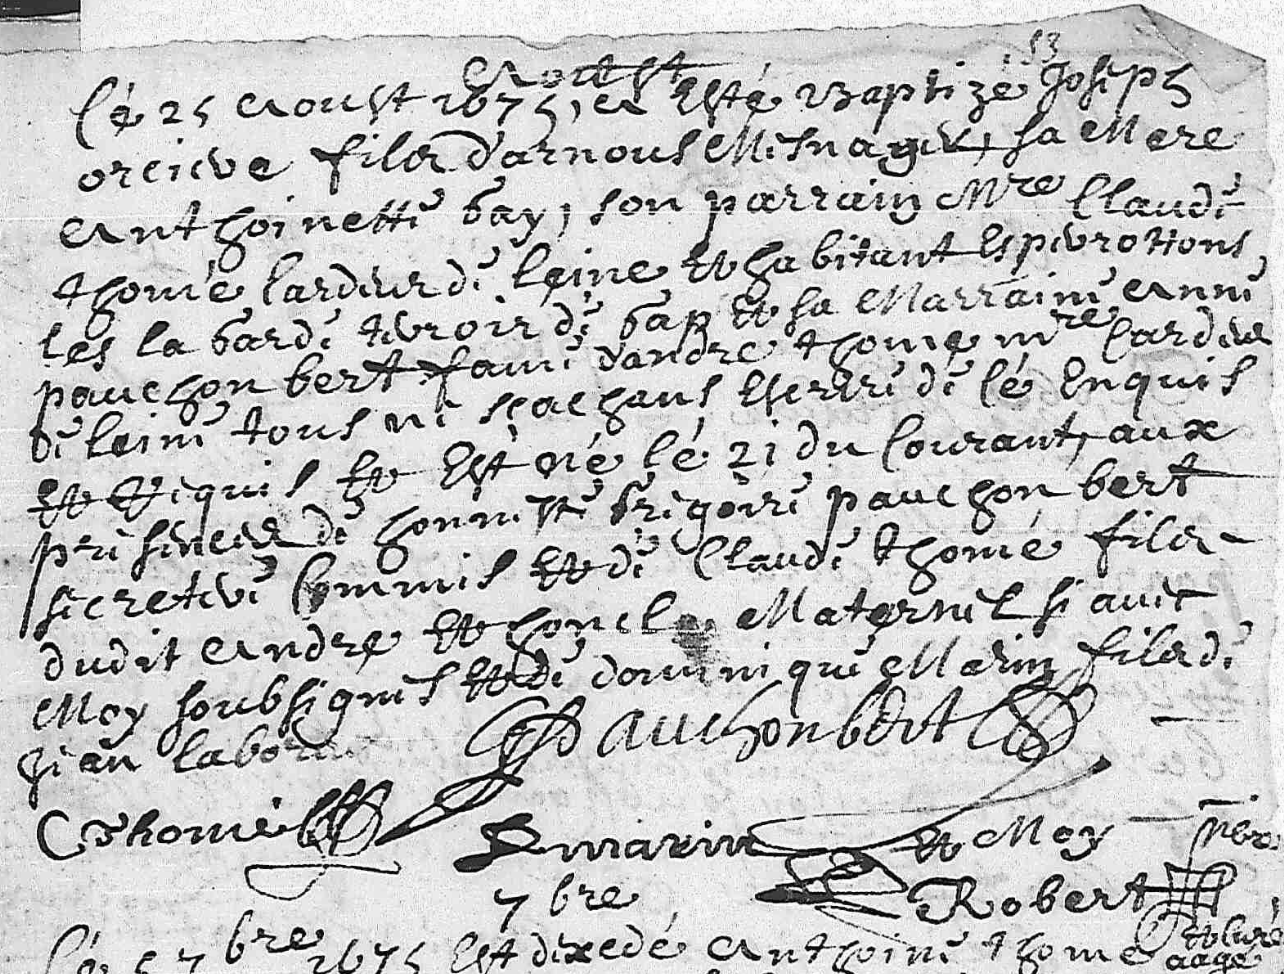 53
Aoust
Le 25 Aoust 1675, a Esté Baptizé Joseph
oreieve filz d'arnoul Mesnager, sa Mere
Anthoinette bay, son parrain Mre Claude
thomé Cardeur de leine et habitant
les la barde de gap et sa Marraine Anne
pauchon bert fame d'andre thomé mre Cardeur
de leine tous ne sçachans Escrire de lé Enquis
et Requis Et Est né lé 21 du Courant, aux
presences de honneste Gregoire pauchon bert
secretere Commis et de Claude thomé filz
dudit Andre et honcle Maternel si avec
Moy soubsignes et de dominique Marin filz de
jean
GPauchonbert
CThomé
D marin et Moy
7bre Robert
et curé
Lé 5 7bre 1675 Est decedé Anthoine thomé aagé